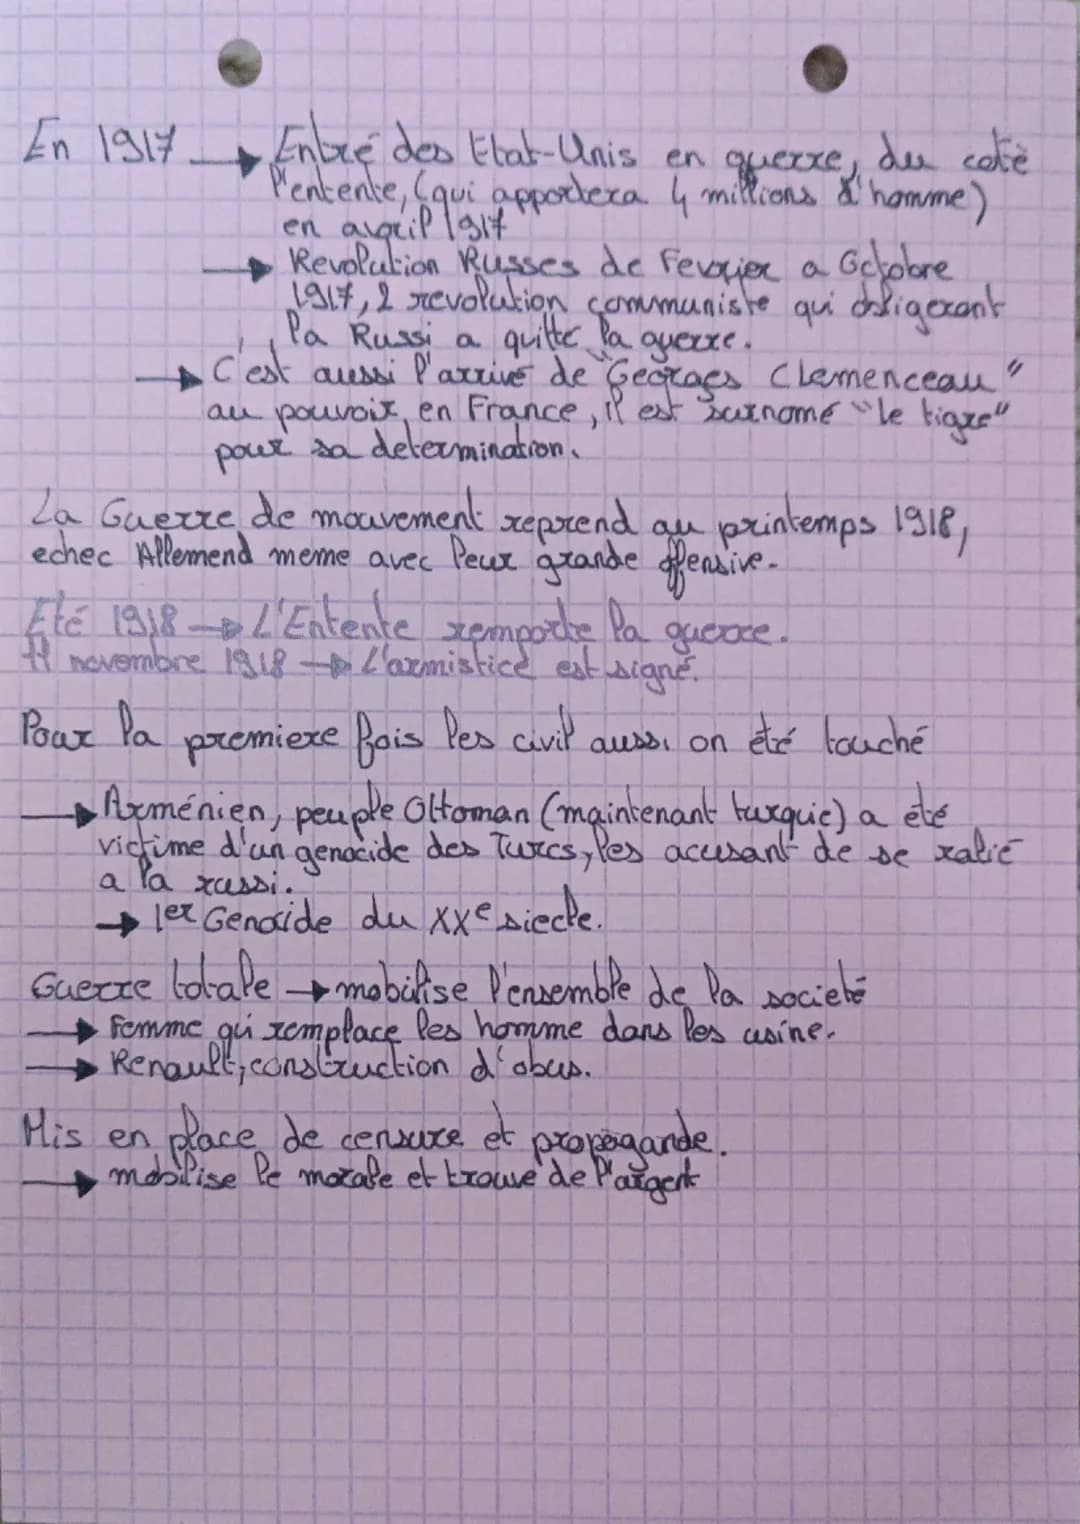 En 1917 → Entré des Etat-Unis en guerre, du cotè
l'entente, (qui apportera 4 millions d'homme)
en avril 1917
→ Revolution Russes de Fevrier a Octobre
1917, 2 revolution communiste qui obligeront
la Russi a quitté la guerre.
→ C'est aussi l'arrivé de "Georges Clemenceau"
au pouvoir en France, il est surnomé "le tigre"
pour sa determination.
La Guerre de mouvement reprend au printemps 1918,
echec Allemend meme avec leur grande offensive.
Eté 1918 → L'Entente remporte la guerre.
11 novembre 1918 → L'armistice est signé.
Pour la premiere fois les civil aussi on été touché
→ Arménien, peuple Ottoman (maintenant turquie) a été
victime d'un genocide des Turcs, les accusant de se ralié
a la russi.
→ 1er Genocide du XXe siecle.
Guerre totale → mobilise l'ensemble de la societé
→ Femme qui remplace les homme dans les usine.
→ Renault, construction d'obus.
Mis en place de censure et propagande.
→ mobilise le morale et trouve de l'argent